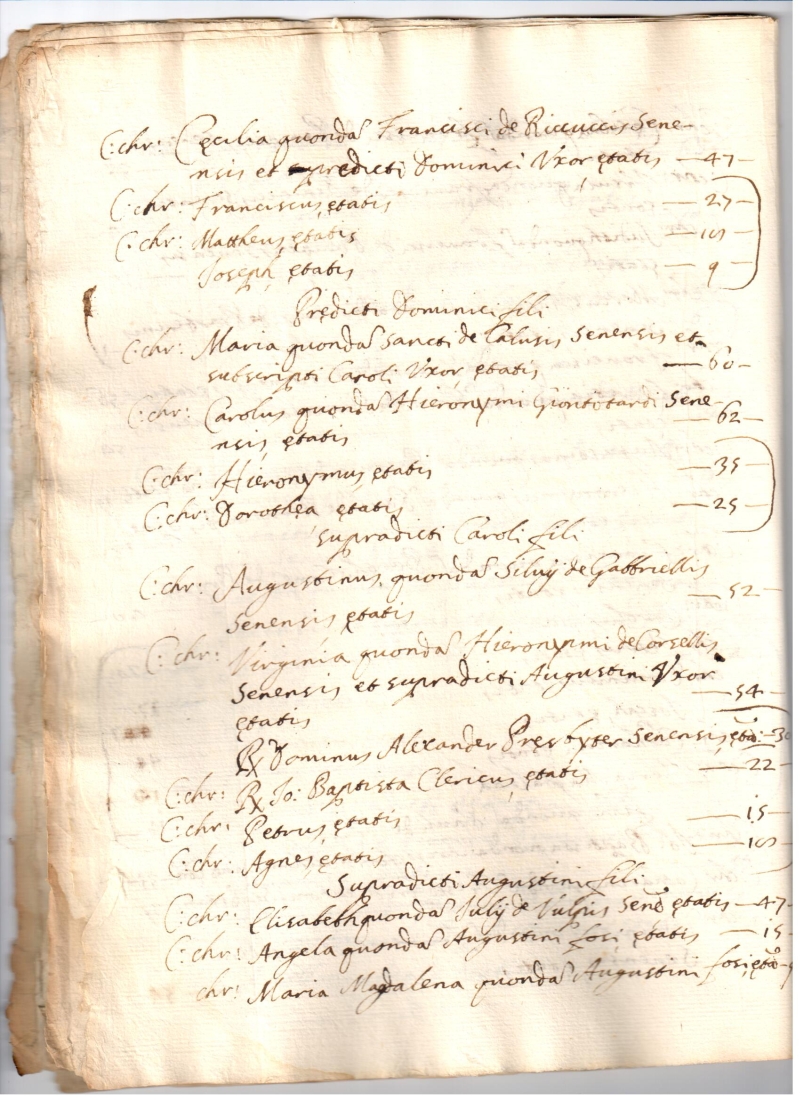 C: chr: Cęcilia quondã Francisci de Riccuccis Sene-
nsis et prędicti Dominici Vxor ętatis — 47 —
C: chr: Franciscus ętatis — 27
C: chr: Mattheus ętatis
Joseph ętatis — 9
Prędicti Dominici fili
C: chr: Maria quondã Sancti de Senensis et
subscripti Caroli Vxor ętatis — 60 —
C: chr: Carolus quondã Hieronymi Sene-
nsis ętatis — 62
C: chr: Hieronymus ętatis — 35
C: chr: Dorothea ętatis — 25
supradicti Caroli fili
C: chr: Augustinus quondã Siluij de Gabbriellis
Senensis ętatis — 52
C: chr: Virginia quondã Hieronymi de Corsellis
Senensis et supradicti Augustini Vxor
ętatis — 54
Dominus Alexander Pręsbyter Senensis
C: chr: Jo: Baptista Clericus ętatis — 22
C: chr: Petrus ętatis — 15
C: chr: Agnes ętatis
Supradicti Augustini fili
C: chr: Elisabeth quondã Julij de Vulpis ętatis — 47
C: chr: Angela quondã Augustini fosi ętatis — 15
chr: Maria Magdalena quondã Augustini fosi